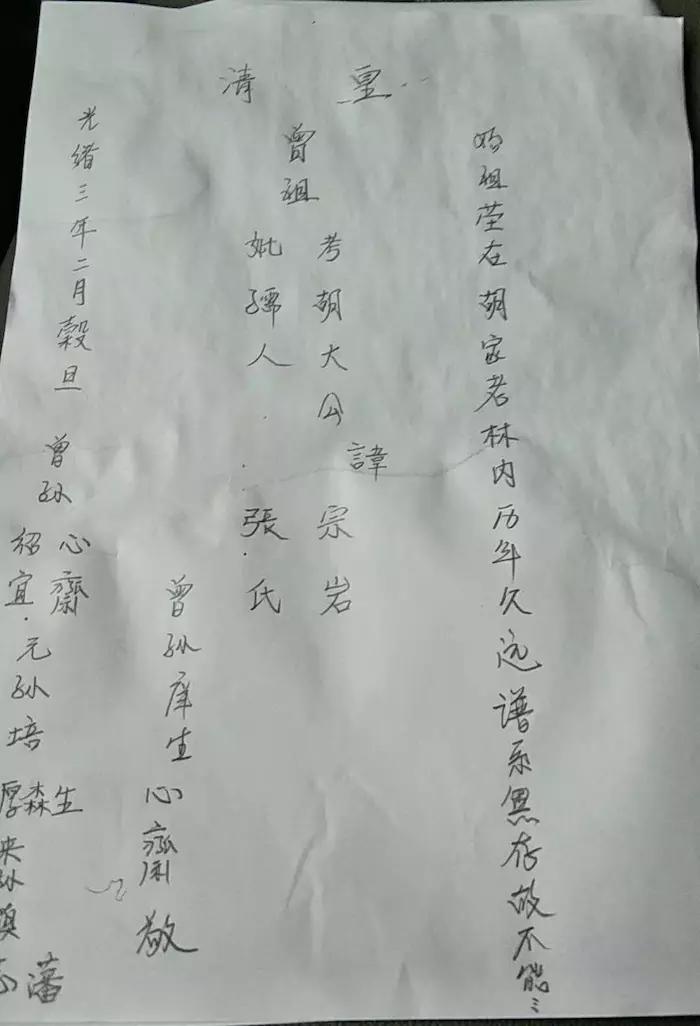 始祖茔在胡家老林内历年久远谱系無存故不能
皇清
曾祖
考胡大公諱宗岩
妣孺人張氏
曾孙庠生心齋敬
光绪三年二月穀旦
曾孙
心齋
绍宜
元孙培
厚森生
来孙
藩